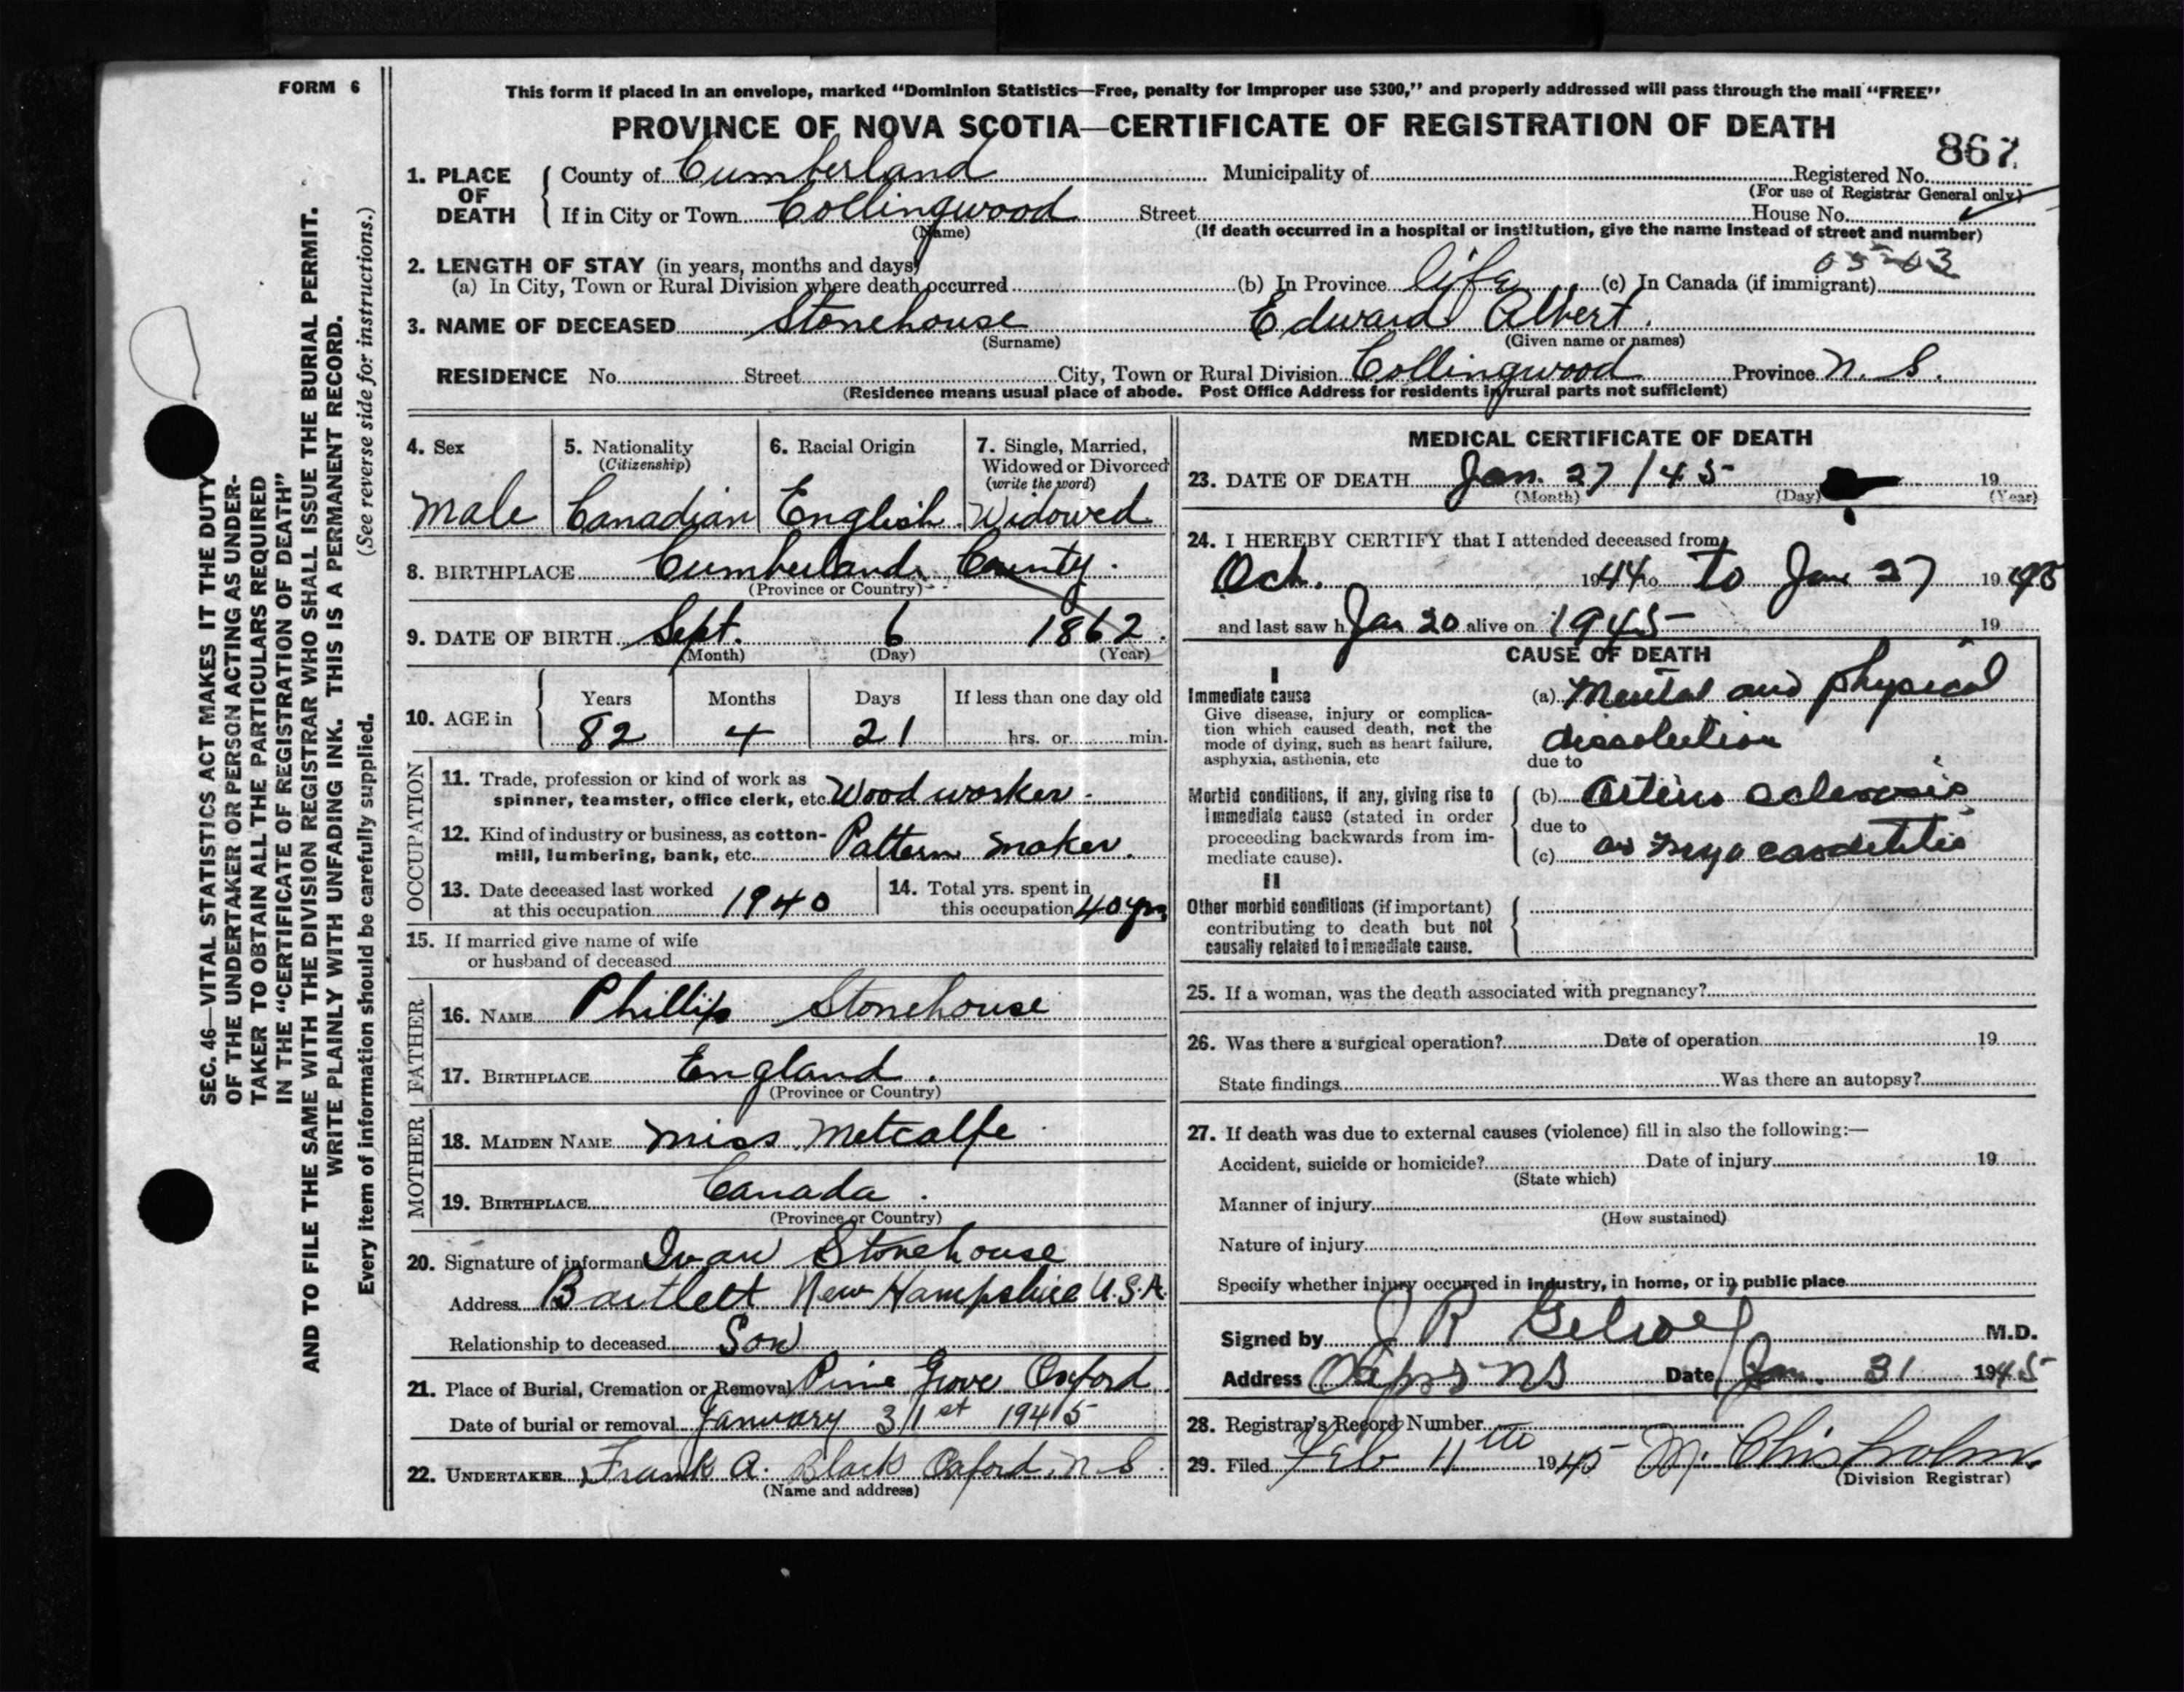 FORM 6
This form if placed in an envelope, marked “Dominion Statistics—Free, penalty for improper use $300,” and properly addressed will pass through the mail “FREE”
PROVINCE OF NOVA SCOTIA—CERTIFICATE OF REGISTRATION OF DEATH
867
1. PLACE OF DEATH
County of Cumberland Municipality of Registered No.
(For use of Registrar General only)
If in City or Town Collingwood Street House No.
(Name) (If death occurred in a hospital or institution, give the name instead of street and number)
2. LENGTH OF STAY (in years, months and days)
(a) In City, Town or Rural Division where death occurred (b) In Province life (c) In Canada (if immigrant)
3. NAME OF DECEASED Stonehouse Edward Albert.
(Surname) (Given name or names)
RESIDENCE No. Street City, Town or Rural Division Collingwood Province N. S.
(Residence means usual place of abode. Post Office Address for residents in rural parts not sufficient)
4. Sex
Male
5. Nationality
(Citizenship)
Canadian
6. Racial Origin
English
7. Single, Married,
Widowed or Divorced
(write the word)
Widowed
8. BIRTHPLACE Cumberland County.
(Province or Country)
9. DATE OF BIRTH Sept. 6 1862.
(Month) (Day) (Year)
10. AGE in
Years Months Days If less than one day old
82 4 21 hrs. or min.
OCCUPATION
11. Trade, profession or kind of work as
spinner, teamster, office clerk, etc. Wood worker.
12. Kind of industry or business, as cotton-
mill, lumbering, bank, etc. Pattern maker.
13. Date deceased last worked
at this occupation 1940
14. Total yrs. spent in
this occupation 40 yrs
15. If married give name of wife
or husband of deceased
FATHER
16. NAME Phillip Stonehouse
17. BIRTHPLACE England.
(Province or Country)
MOTHER
18. MAIDEN NAME Miss Metcalfe
19. BIRTHPLACE Canada.
(Province or Country)
20. Signature of informant Ivan Stonehouse
Address Bartlett New Hampshire U.S.A.
Relationship to deceased Son
21. Place of Burial, Cremation or Removal Pine Grove Oxford
Date of burial or removal January 31st 1945
22. UNDERTAKER Frank A. Black Oxford, N S
(Name and address)
MEDICAL CERTIFICATE OF DEATH
23. DATE OF DEATH Jan. 27 / 45 19
(Month) (Day) (Year)
24. I HEREBY CERTIFY that I attended deceased from
Oct. 1944 to to Jan 27 19 45
and last saw h Jan 20 alive on 1945 19
CAUSE OF DEATH
I
Immediate cause
Give disease, injury or complica-
tion which caused death, not the
mode of dying, such as heart failure,
asphyxia, asthenia, etc
(a) Mental and physical
dissolution
due to
Morbid conditions, if any, giving rise to
immediate cause (stated in order
proceeding backwards from im-
mediate cause).
(b) Arterio sclerosis
due to
(c) myocarditis
II
Other morbid conditions (if important)
contributing to death but not
causally related to immediate cause.
25. If a woman, was the death associated with pregnancy?
26. Was there a surgical operation? Date of operation 19
State findings Was there an autopsy?
27. If death was due to external causes (violence) fill in also the following:—
Accident, suicide or homicide? Date of injury 19
(State which)
Manner of injury
(How sustained)
Nature of injury
Specify whether injury occurred in industry, in home, or in public place
Signed by J R M.D.
Address NS Date Jan. 31 1945
28. Registrar's Record Number
29. Filed Feb 11th 1945 M. Chisholm.
(Division Registrar)
SEC. 46—VITAL STATISTICS ACT MAKES IT THE DUTY
OF THE UNDERTAKER OR PERSON ACTING AS UNDER-
TAKER TO OBTAIN ALL THE PARTICULARS REQUIRED
IN THE “CERTIFICATE OF REGISTRATION OF DEATH”
AND TO FILE THE SAME WITH THE DIVISION REGISTRAR WHO SHALL ISSUE THE BURIAL PERMIT.
WRITE PLAINLY WITH UNFADING INK. THIS IS A PERMANENT RECORD.
Every item of information should be carefully supplied. (See reverse side for instructions.)